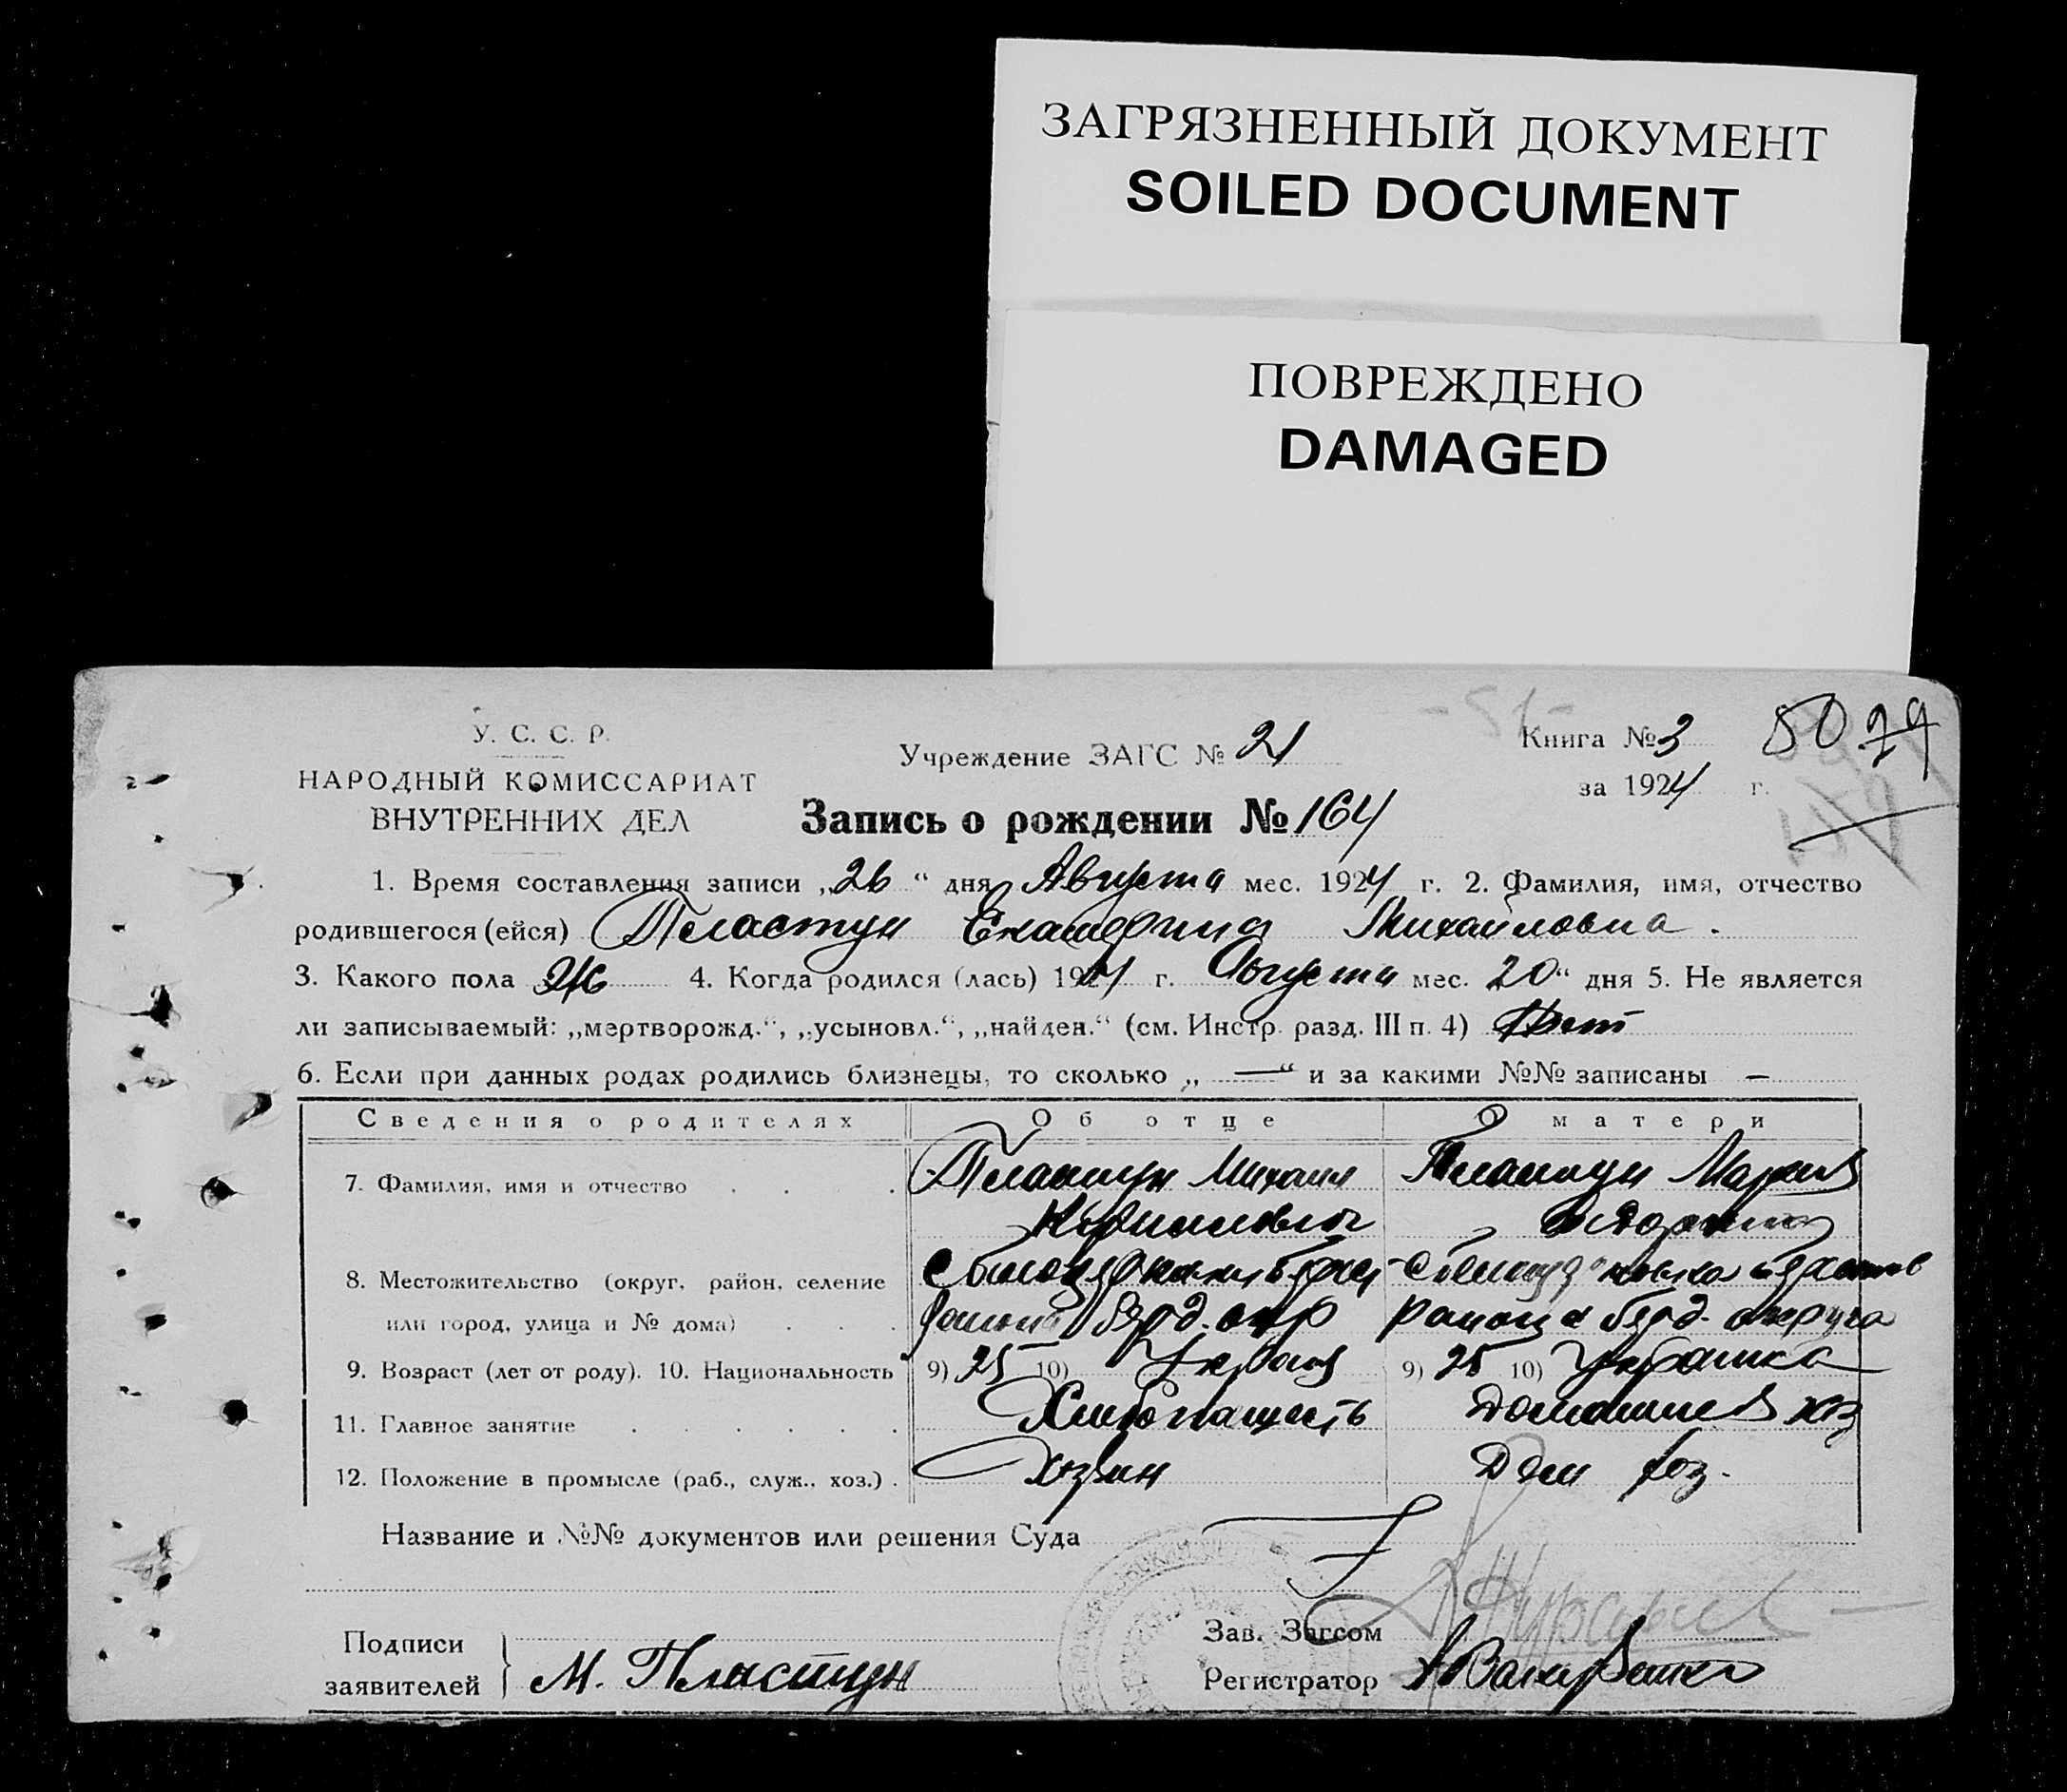 ЗАГРЯЗНЕННЫЙ ДОКУМЕНТ
SOILED DOCUMENT
ПОВРЕЖДЕНО
DAMAGED
У. С. С. Р.
НАРОДНЫЙ КОМИССАРИАТ
ВНУТРЕННИХ ДЕЛ
Учреждение ЗАГС № 21
Книга № 3
за 1924 г.
50
Запись о рождении № 164
1. Время составления записи „26“ дня Августа мес. 1924 г. 2. Фамилия, имя, отчество
родившегося (ейся) Пластун Екатерина Михайловна.
3. Какого пола Ж 4. Когда родился (лась) 1924 г. Августа мес. 20“ дня 5. Не является
ли записываемый: „мертворожд.“, „усыновл.“, „найден.“ (см. Инстр. разд. III п. 4) Нет
6. Если при данных родах родились близнецы, то сколько „ — “ и за какими №№ записаны —
Сведения о родителях Об отце О матери
7. Фамилия, имя и отчество Пластун Михаил Пластун Мария
8. Местожительство (округ, район, селение
или город, улица и № дома) района Берд. окр района Берд. округа
9. Возраст (лет от роду). 10. Национальность 9) 25 10) 9) 25 10) Украинка
11. Главное занятие Домашнее хоз
12. Положение в промысле (раб., служ., хоз.) Хозяин Дом хоз.
Название и №№ документов или решения Суда
Подписи
заявителей М. Пластун
Зав. Загсом
Регистратор